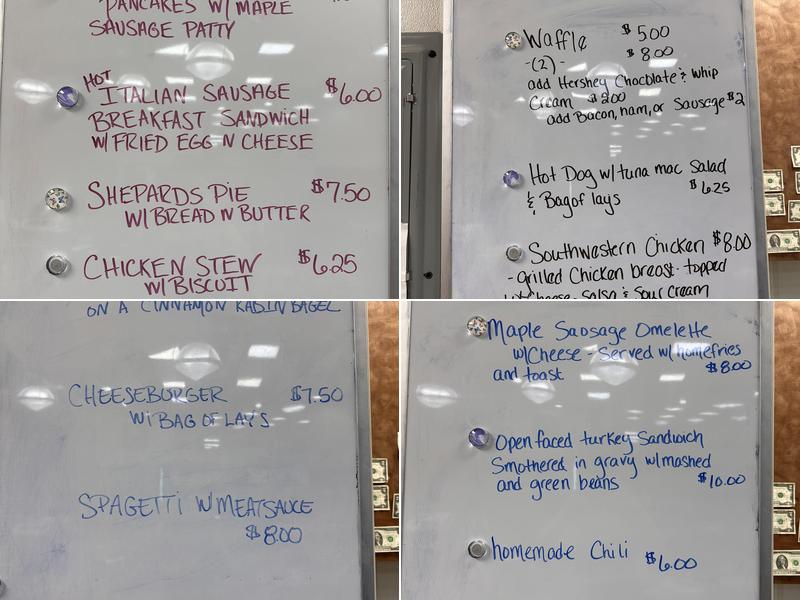 PANCAKES W/ MAPLE
SAUSAGE PATTY
HOT
ITALIAN SAUSAGE $6.00
BREAKFAST SANDWICH
W/ FRIED EGG N CHEESE
SHEPARDS PIE $7.50
W/ BREAD N BUTTER
CHICKEN STEW $6.25
W/ BISCUIT
Waffle $5.00
-(2)- $8.00
add Hershey Chocolate & Whip
Cream $2.00
add Bacon, ham, or Sausage $2
Hot Dog w/ tuna mac Salad
& Bag of lays $6.25
Southwestern Chicken $8.00
- grilled Chicken breast - topped
w/ Cheese, Salsa & Sour Cream
ON A CINNAMON RASIN BAGEL
CHEESEBURGER $7.50
W/ BAG OF LAYS
SPAGETTI W/ MEATSAUCE
$8.00
Maple Sausage Omelette
w/ Cheese - Served w/ homefries
and toast $8.00
Open faced turkey Sandwich
Smothered in gravy w/ mashed
and green beans $10.00
homemade Chili $6.00